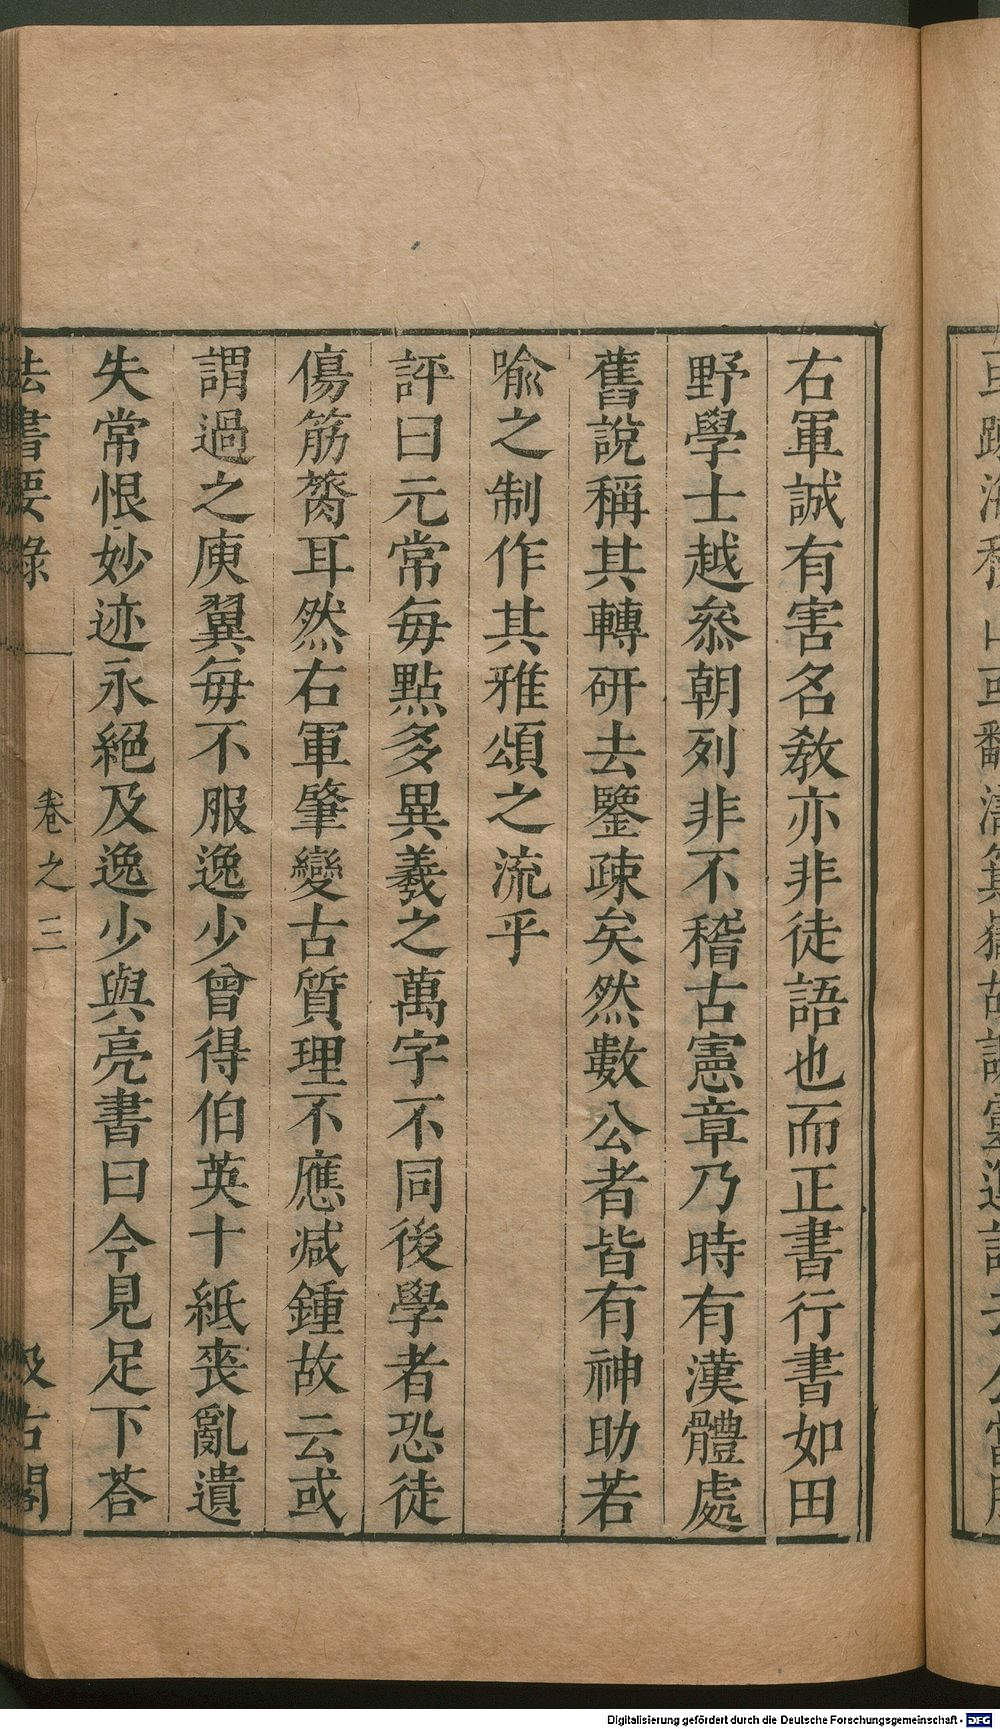 右軍誠有害名教亦非徒語也而正書行書如田
野學士越叅朝列非不稽古憲章乃時有漢體處
舊說稱其轉研去鑒疎矣然數公者皆有神助若
喻之制作其雅頌之流乎
評曰元常每點多異羲之萬字不同後學者恐徒
傷筋膂耳然右軍肇變古質理不應减鍾故云或
謂過之庾翼每不服逸少曾得伯英十紙喪亂遺
失常恨妙迹永絕及逸少與亮書曰今見足下荅
法書要錄
卷之三
汲古閣
Digitalisierung gefördert durch die Deutsche Forschungsgemeinschaft - DFG